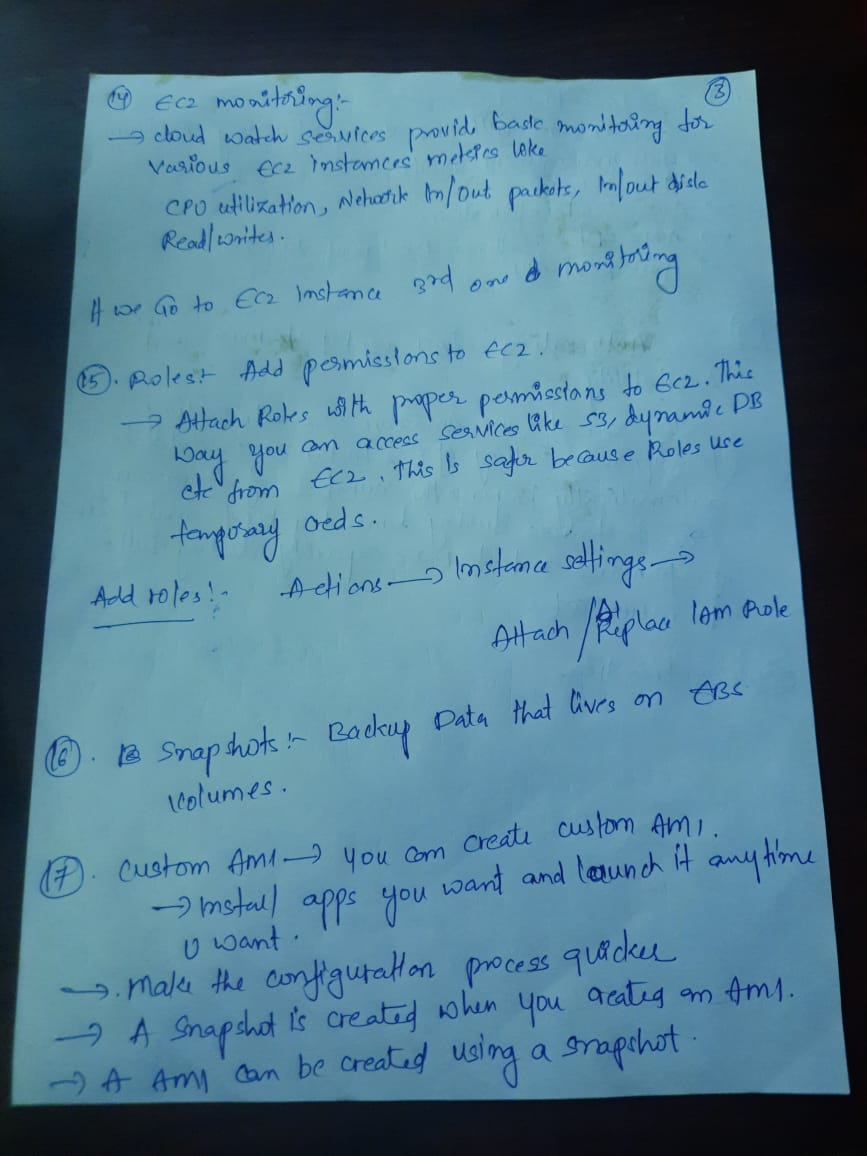 (14) EC2 monitoring:- (3)
→ cloud watch services provide basic monitoring for
various EC2 instances metrics like
CPU utilization, Network In/out packets, In/out disk
Read/writes.
# we Go to EC2 Instance 3rd one monitoring
(15). Roles:- Add permissions to EC2.
→ Attach Roles with proper permissions to EC2. This
way you can access services like S3, dynamic DB
etc from EC2. This is safer because Roles use
temporary creds.
Add roles:- Actions → Instance settings →
Attach / Replace IAM Role
(16). Snapshots:- Backup Data that lives on EBS
volumes.
(17). Custom AMI → you can create custom AMI.
→ Install apps you want and launch it anytime
U want.
→. Make the configuration process quicker
→ A Snapshot is created when you created an AMI.
→ A AMI can be created using a snapshot.